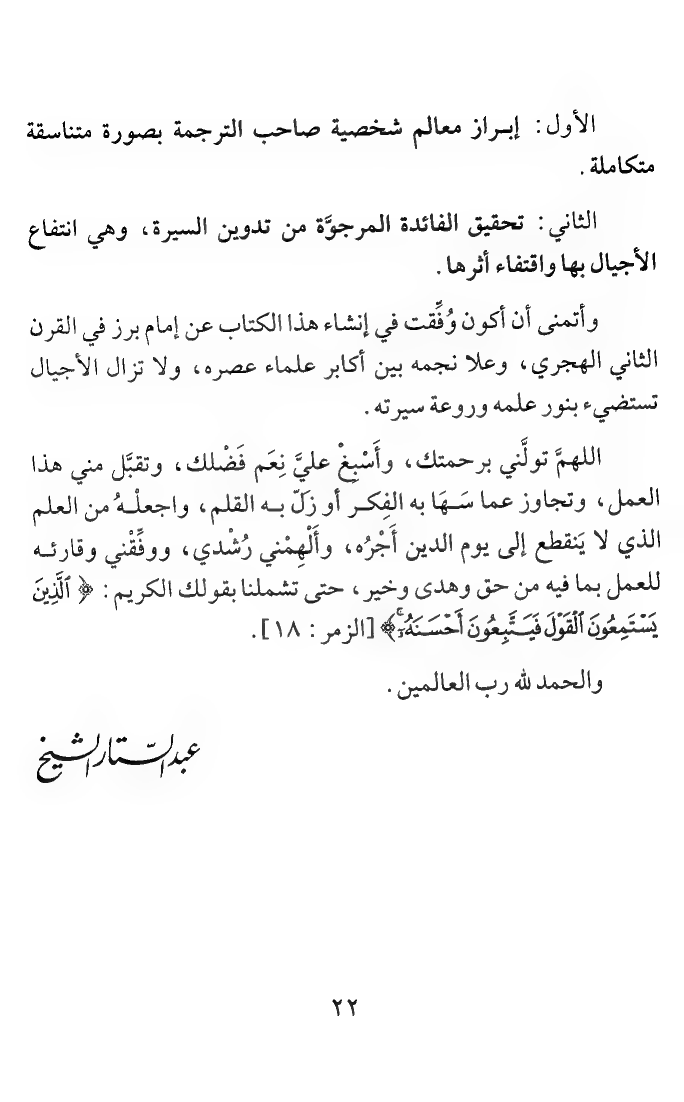 الأول: إبـراز معالم شخصية صاحب الترجمة بصورة متناسقة
متكاملة.
الثاني: تحقيق الفائدة المرجوَّة من تدوين السيرة، وهي انتفاع
الأجيال بها واقتفاء أثرها.
وأتمنى أن أكون وُفِّقت في إنشاء هذا الكتاب عن إمام برز في القرن
الثاني الهجري، وعلا نجمه بين أكابر علماء عصره، ولا تزال الأجيال
تستضيء بنور علمه وروعة سيرته.
اللهمَّ تولَّني برحمتك، وأَسْبِغْ عليَّ نِعَم فَضْلك، وتقبَّل مني هذا
العمل، وتجاوز عما سَـهَا به الفِكـر أو زلّ بـه القلم، واجعلْـهُ من العلم
الذي لا يَنقطع إلى يوم الدين أَجْرُه، وأَلْهِمْني رُشْدي، ووفِّقْني وقارئـه
للعمل بما فيه من حق وهدى وخير، حتى تشملنا بقولك الكريم: ﴿ ٱلَّذِينَ
يَسْتَمِعُونَ ٱلْقَوْلَ فَيَتَّبِعُونَ أَحْسَنَهُۥٓۚ﴾ [الزمر: ١٨].
والحمد لله رب العالمين.
عبد الستار الشيخ
٢٢